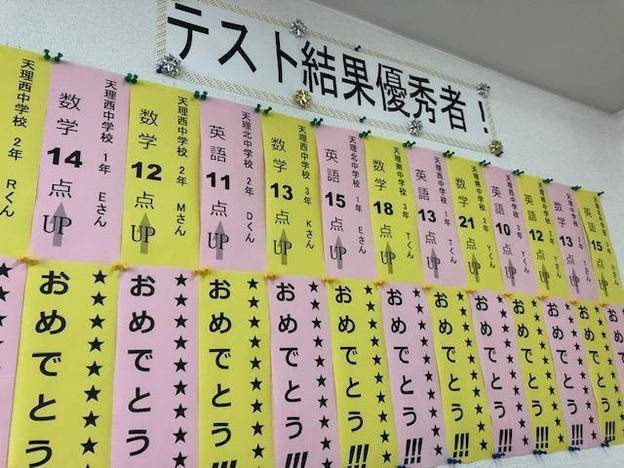 テスト結果優秀者！
天理西中学校 2年 Rくん
天理西中学校 1年 Eさん
数学 14点 UP
天理西中学校 2年 Mさん
数学 12点 UP
天理北中学校 2年 Dくん
英語 11点 UP
天理北中学校 3年 Kさん
数学 13点 UP
天理北中学校 1年 Eさん
英語 15点 UP
天理南中学校 3年 Tくん
数学 18点 UP
天理西中学校 1年 Tくん
英語 13点 UP
天理南中学校 2年 Yくん
数学 21点 UP
英語 10点 UP
英語 12点 UP
数学 13点 UP
英語 15点
おめでとう!!!
おめでとう
おめでとう!!
おめでとう!!!
おめでとう!!!
おめでとう!!!
おめでとう!!!
おめでとう!!!
おめでとう!!!
おめでとう!!!
おめでとう!!!